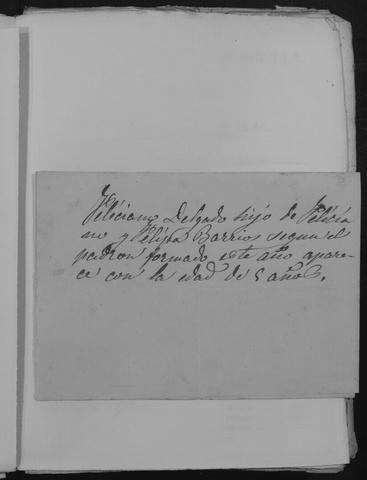 Féliciano Delgado hijo de Félicia
no y Felipa Barrios segun el
padron formado este año apare-
ce con la edad de 5 años.